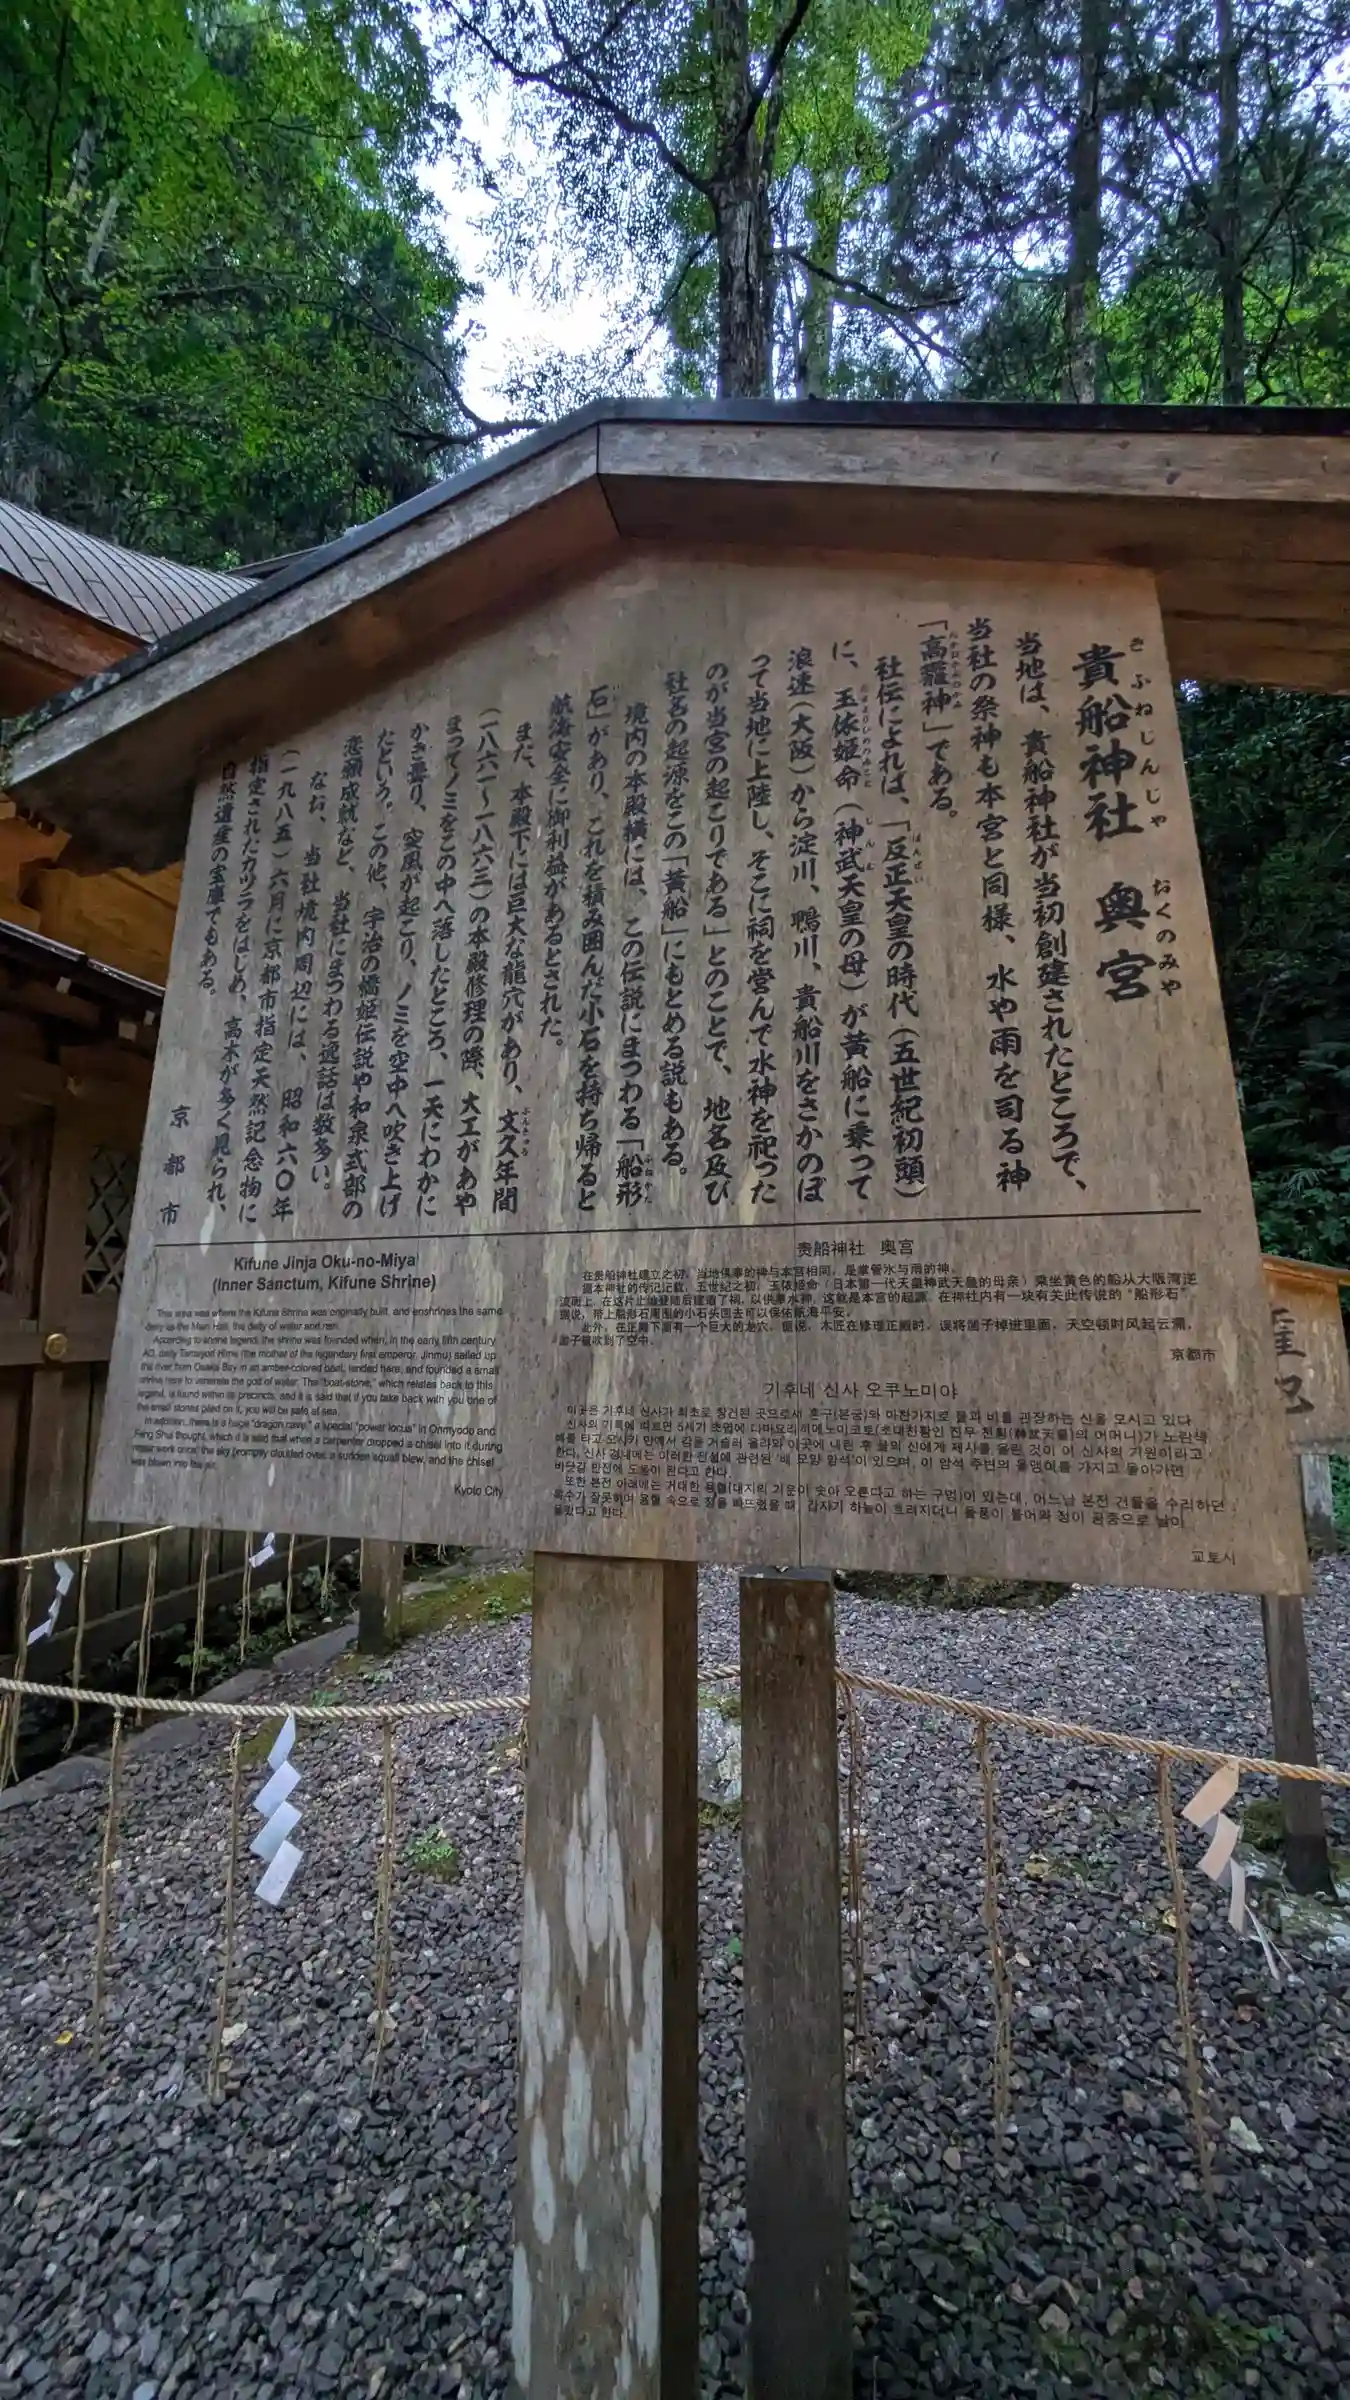 貴船神社 奥宮
きふねじんじゃ おくのみや
当地は、貴船神社が当初創建されたところで、
当社の祭神も本宮と同様、水や雨を司る神
「高龗神」である。
たかおかみのかみ
社伝によれば、「反正天皇の時代(五世紀初頭)
はんぜい
に、玉依姫命(神武天皇の母)が黄船に乗って
たまよりひめのみこと じんむ
浪速(大阪)から淀川、鴨川、貴船川をさかのぼ
って当地に上陸し、そこに祠を営んで水神を祀った
のが当宮の起こりである」とのことで、地名及び
社名の起源をこの「黄船」にもとめる説もある。
境内の本殿横には、この伝説にまつわる「船形
ふねがた
石」があり、これを積み囲んだ小石を持ち帰ると
航海安全に御利益があるとされた。
また、本殿下には巨大な龍穴があり、文久年間
ぶんきゅう
(一八六一~一八六三)の本殿修理の際、大工があや
まってノミをこの中へ落したところ、一天にわかに
かき曇り、突風が起こり、ノミを空中へ吹き上げ
たという。この他、宇治の橋姫伝説や和泉式部の
恋願成就など、当社にまつわる逸話は数多い。
なお、当社境内周辺には、昭和六〇年
(一九八五)六月に京都市指定天然記念物に
指定されたカツラをはじめ、高木が多く見られ、
自然遺産の宝庫でもある。
京都市
Kifune Jinja Oku-no-Miya
(Inner Sanctum, Kifune Shrine)
This area was where the Kifune Shrine was originally built, and enshrines the same
deity as the Main Hall, the deity of water and rain.
According to shrine legend, the shrine was founded when, in the early fifth century
AD, deity Tamayori Hime (the mother of the legendary first emperor, Jinmu) sailed up
the river from Osaka Bay in an amber-colored boat, landed here, and founded a small
shrine here to venerate the god of water. The "boat-stone," which relates back to this
legend, is found within its precincts, and it is said that if you take back with you one of
the small stones piled on it, you will be safe at sea.
In addition, there is a huge "dragon cave," a special "power locus" in Onmyodo and
Feng Shui thought, which it is said that when a carpenter dropped a chisel into it during
repair work once, the sky promptly clouded over, a sudden squall blew, and the chisel
was blown into the air.
Kyoto City
贵船神社 奥宫
在贵船神社建立之初,当地供奉的神与本宫相同,是掌管水与雨的神。
据本神社的传记记载,五世纪之初,玉依姬命(日本第一代天皇神武天皇的母亲)乘坐黄色的船从大阪湾逆
流而上,在这片土地登陆后建造了祠,以供奉水神,这就是本宫的起源。在神社内有一块有关此传说的“船形石”,
据说,带上船形石周围的小石头回去可以保佑航海平安。
此外,在正殿下面有一个巨大的龙穴,据说,木匠在修理正殿时,误将凿子掉进里面,天空顿时风起云涌,
凿子被吹到了空中。
京都市
기후네 신사 오쿠노미야
이곳은 기후네 신사가 최초로 창건된 곳으로서 혼구(본궁)와 마찬가지로 물과 비를 관장하는 신을 모시고 있다.
신사의 기록에 따르면 5세기 초엽에 다마요리히메노미코토(초대천황인 진무 천황(神武天皇)의 어머니)가 노란색
배를 타고 오사카 만에서 강을 거슬러 올라와 이곳에 내린 후 물의 신에게 제사를 올린 것이 이 신사의 기원이라고
한다. 신사 경내에는 이러한 전설에 관련된 '배 모양 암석'이 있으며, 이 암석 주변의 돌맹이를 가지고 돌아가면
바닷길 안전에 도움이 된다고 한다.
또한 본전 아래에는 거대한 용혈(대지의 기운이 솟아 오른다고 하는 구멍)이 있는데, 어느날 본전 건물을 수리하던
목수가 잘못하여 용혈 속으로 정을 빠뜨렸을 때, 갑자기 하늘이 흐려지더니 돌풍이 불어와 정이 공중으로 날아
올랐다고 한다.
교토시